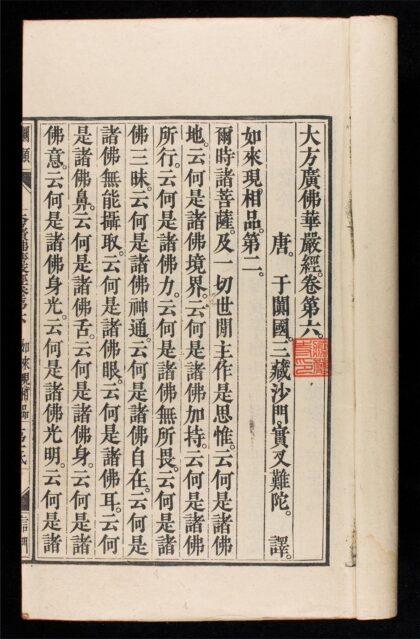 大方廣佛華嚴經。卷第六。
唐。于闐國。三藏沙門。實叉難陀。譯。
如來現相品。第二。
爾時諸菩薩。及一切世間主作是思惟。云何是諸佛
地。云何是諸佛境界。云何是諸佛加持。云何是諸佛
所行。云何是諸佛力。云何是諸佛無所畏。云何是諸
佛三昧。云何是諸佛神通。云何是諸佛自在。云何是
諸佛無能攝取。云何是諸佛眼。云何是諸佛耳。云何
是諸佛鼻。云何是諸佛舌。云何是諸佛身。云何是諸
佛意。云何是諸佛身光。云何是諸佛光明。云何是諸
如來現相品